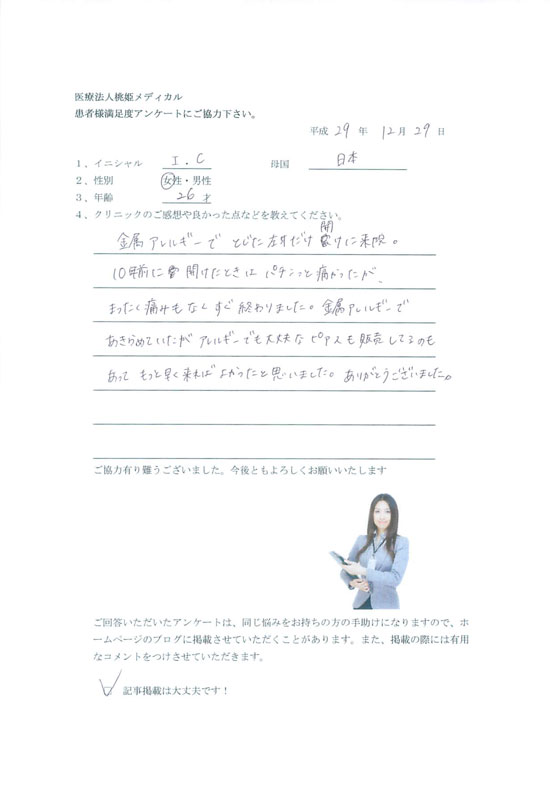 医療法人桃姫メディカル
患者様満足度アンケートにご協力下さい。
平成 29 年 12月 29 日
1、イニシャル I.C 母国 日本
2、性別 女性・男性
3、年齢 26才
4、クリニックのご感想や良かった点などを教えてください。
金属アレルギーで とじた左耳だけ 開けに来院。
10年前に 開けたときは バチンっと痛かったが、
まったく痛みもなく すぐ 終わりました。金属アレルギーで
あきらめていたが アレルギーでも大丈夫な ピアスも販売してるのも
あって もっと早く来れば よかったと思いました。ありがとうございました。
ご協力有り難うございました。今後ともよろしくお願いいたします
ご回答いただいたアンケートは、同じ悩みをお持ちの方の手助けになりますので、ホ
ームページのブログに掲載させていただくことがあります。また、掲載の際には有用
なコメントをつけさせていただきます。
記事掲載は大丈夫です！